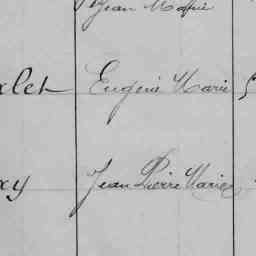 Jean Marie
xlet Eugène Marie
xy Jean Pierre Marie